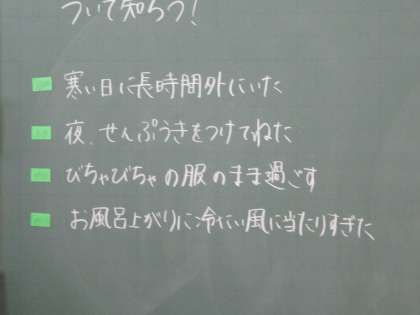 ついて知ろう!
寒い日に長時間外にいた
夜、せんぷうきをつけてねた
びちゃびちゃの服のまま過ごす
お風呂上がりに冷たい風に当たりすぎた